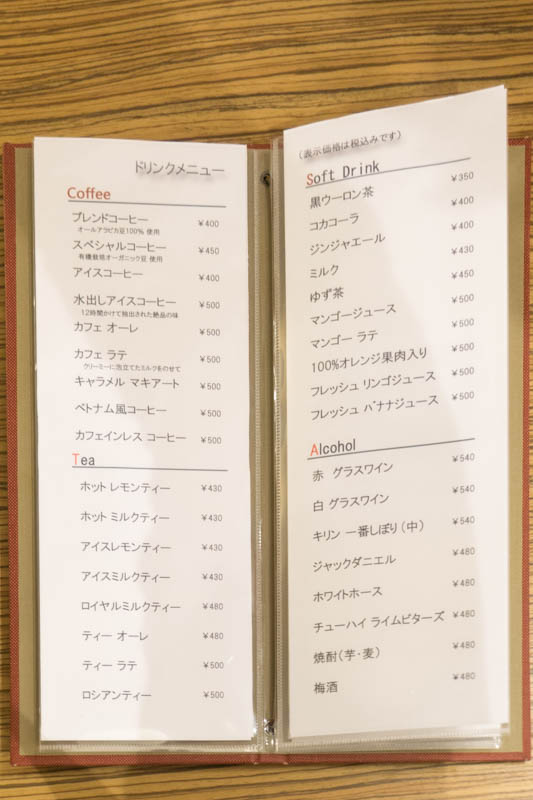 ドリンクメニュー
Coffee
ブレンドコーヒー ￥400
オールアラビカ豆100% 使用
スペシャルコーヒー ￥450
有機栽培オーガニック豆 使用
アイスコーヒー ￥400
水出しアイスコーヒー ￥500
12時間かけて抽出された絶品の味
カフェ オーレ ￥500
カフェ ラテ ￥500
クリーミーに泡立てたミルクをのせて
キャラメル マキアート ￥500
ベトナム風コーヒー ￥500
カフェインレス コーヒー ￥500
Tea
ホット レモンティー ￥430
ホット ミルクティー ￥430
アイスレモンティー ￥430
アイスミルクティー ￥430
ロイヤルミルクティー ￥480
ティー オーレ ￥480
ティー ラテ ￥500
ロシアンティー ￥500
（表示価格は税込みです）
Soft Drink
黒ウーロン茶 ￥350
コカコーラ ￥400
ジンジャエール ￥400
ミルク ￥430
ゆず茶 ￥450
マンゴージュース ￥500
マンゴー ラテ ￥500
100%オレンジ果肉入り ￥500
フレッシュ リンゴジュース ￥500
フレッシュ バナナジュース ￥500
Alcohol
赤 グラスワイン ￥540
白 グラスワイン ￥540
キリン 一番しぼり（中） ￥540
ジャックダニエル ￥480
ホワイトホース ￥480
チューハイ ライムビターズ ￥480
焼酎（芋・麦） ￥480
梅酒 ￥480